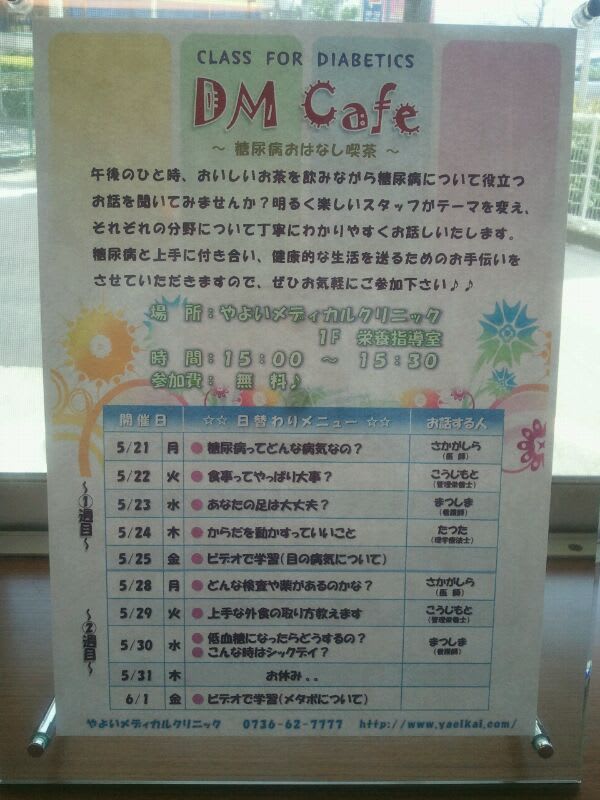 CLASS FOR DIABETICS
DM Cafe
～ 糖尿病おはなし喫茶 ～
午後のひと時、おいしいお茶を飲みながら糖尿病について役立つ
お話を聞いてみませんか？明るく楽しいスタッフがテーマを変え、
それぞれの分野について丁寧にわかりやすくお話しいたします。
糖尿病と上手に付き合い、健康的な生活を送るためのお手伝いを
させていただきますので、ぜひお気軽にご参加下さい♪♪
場 所：やよいメディカルクリニック
1F 栄養指導室
時 間：15：00 ～ 15：30
参加費： 無 料♪
開催日 ☆☆ 日替わりメニュー ☆☆ お話する人
～①週目～
5/21 月 ●糖尿病ってどんな病気なの？ さかがしら
(医 師)
5/22 火 ●食事ってやっぱり大事？ こうじもと
(管理栄養士)
5/23 水 ●あなたの足は大丈夫？ まつしま
(看護師)
5/24 木 ●からだを動かすっていいこと たつた
(理学療法士)
5/25 金 ●ビデオで学習(目の病気について)
～②週目～
5/28 月 ●どんな検査や薬があるのかな？ さかがしら
(医 師)
5/29 火 ●上手な外食の取り方教えます こうじもと
(管理栄養士)
5/30 水 ●低血糖になったらどうするの？
●こんな時はシックデイ？ まつしま
(看護師)
5/31 木 お休み。。
6/1 金 ●ビデオで学習(メタボについて)
やよいメディカルクリニック 0736-62-7777 http://www.yaoikai.com/